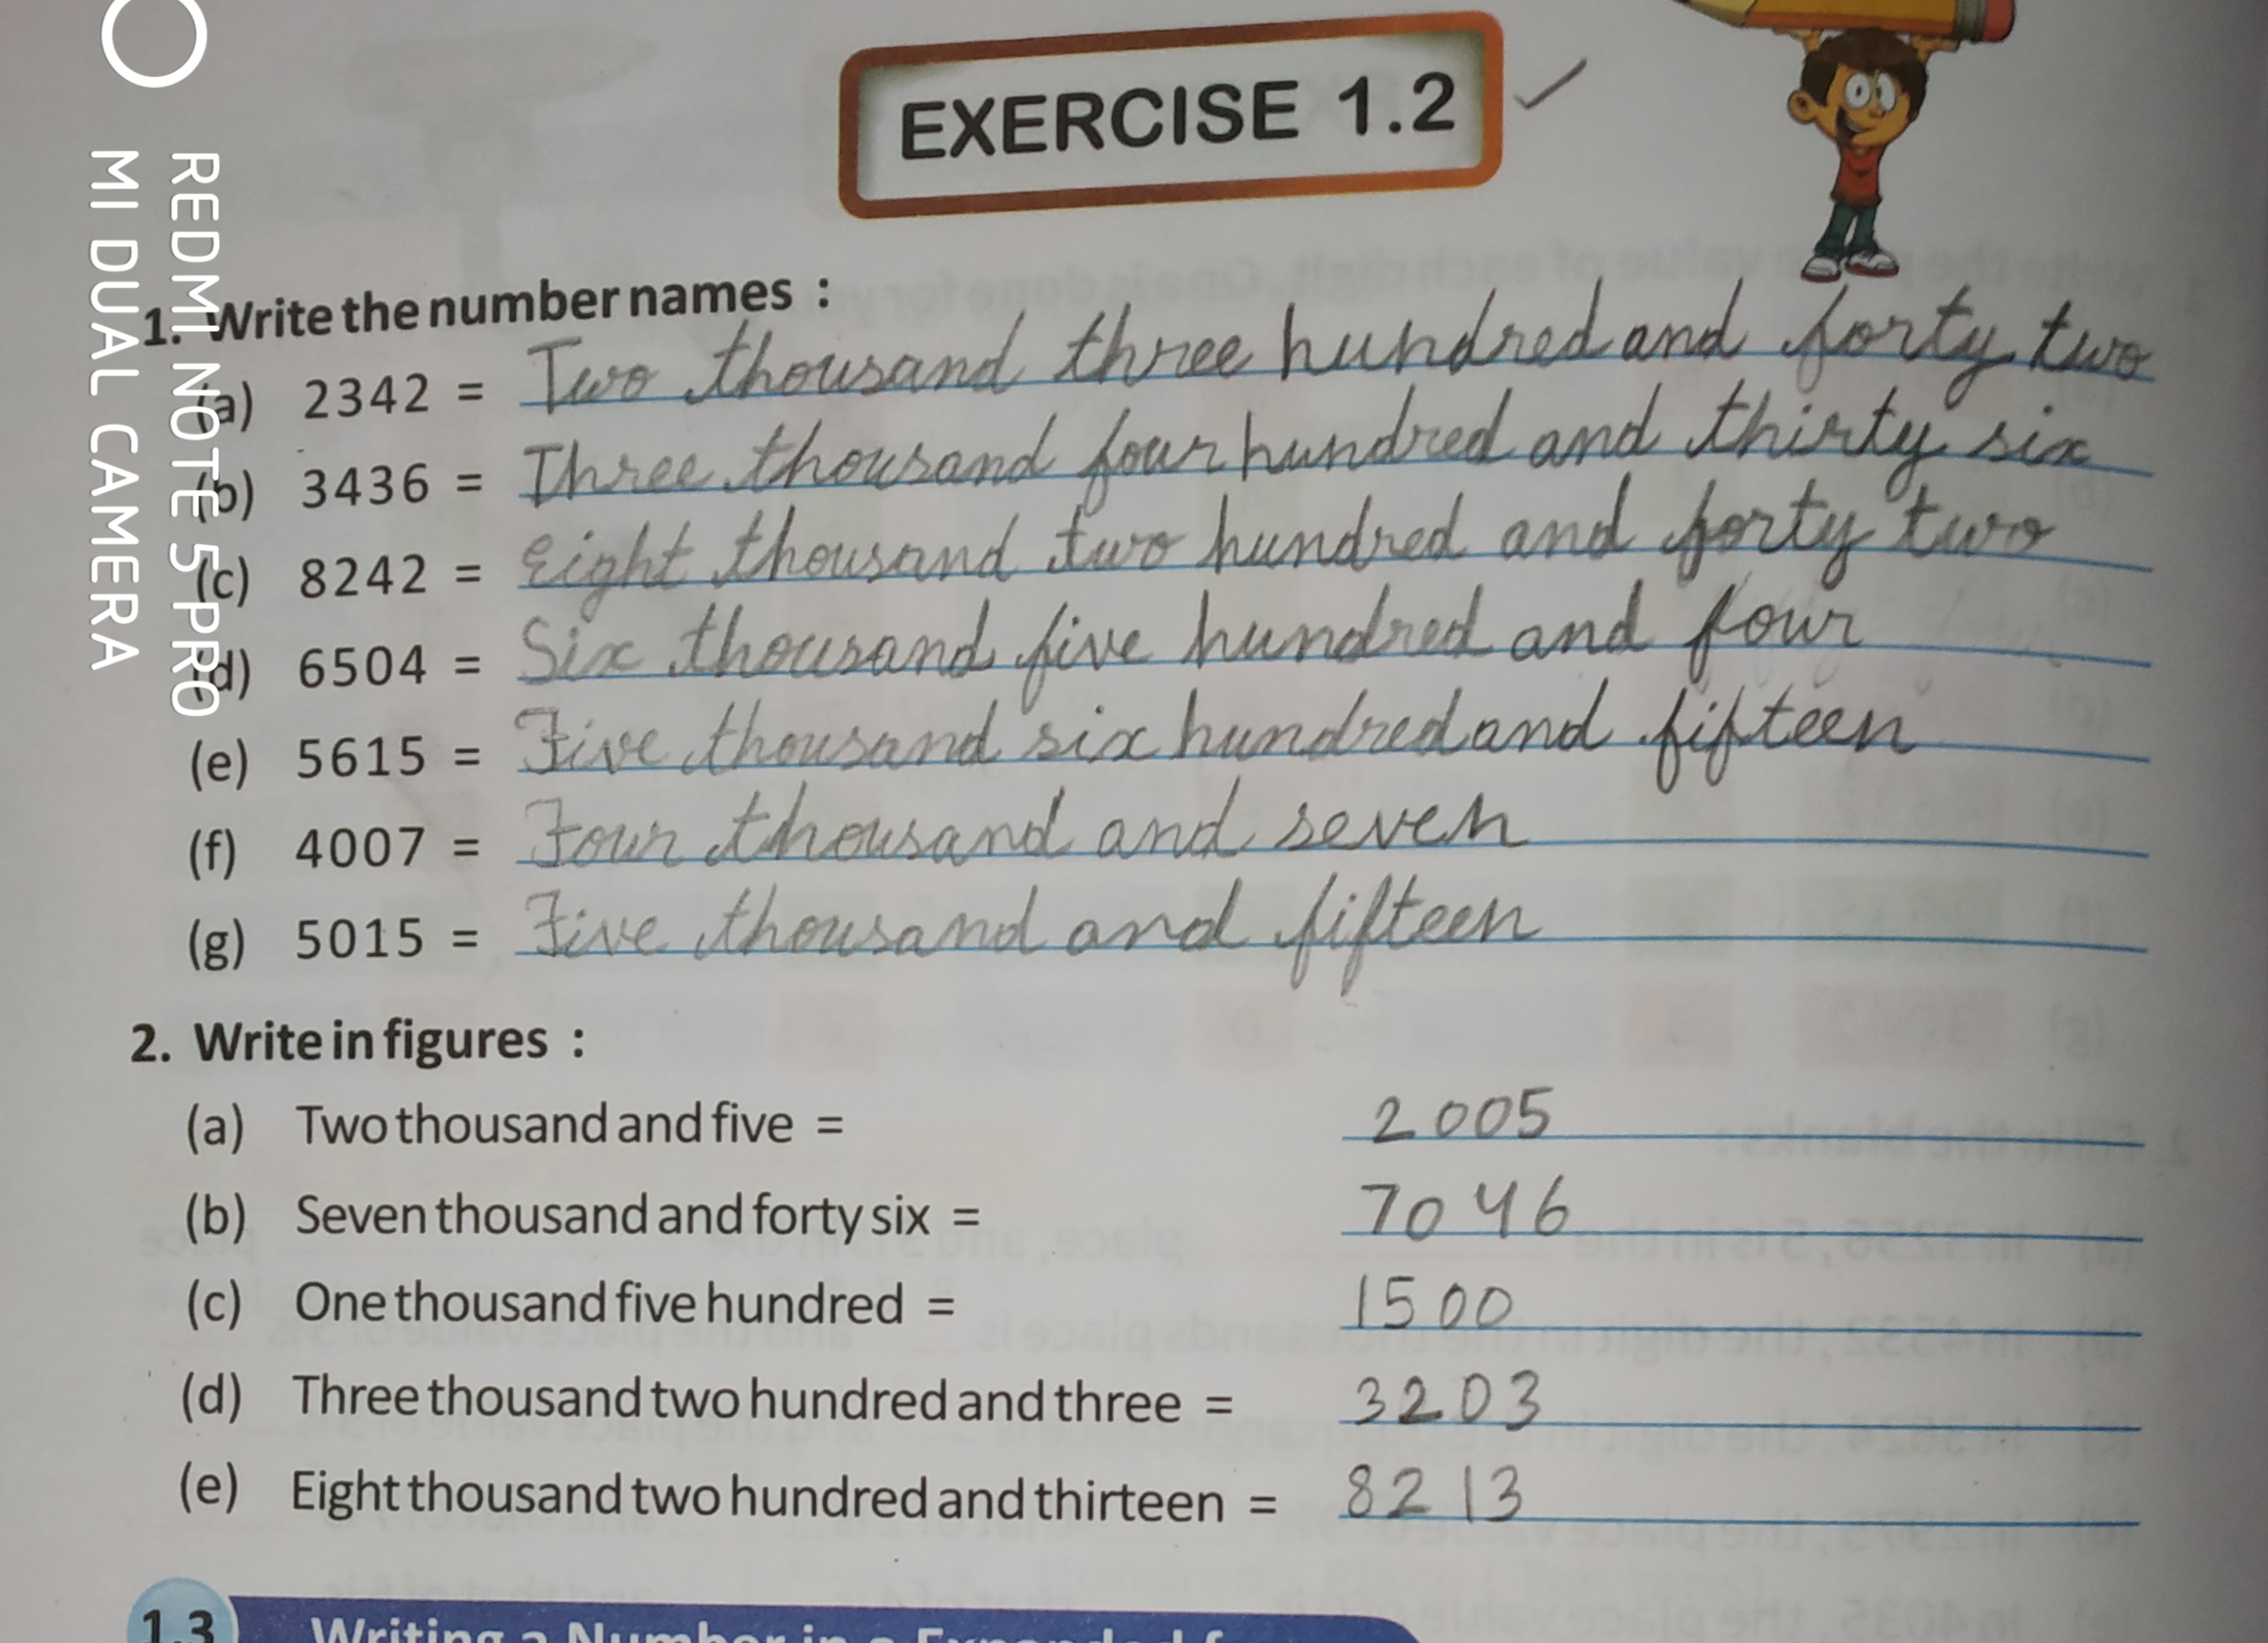 EXERCISE 1.2
1. Write the number names :
(a) 2342 = Two thousand three hundred and forty two
(b) 3436 = Three thousand four hundred and thirty six
(c) 8242 = Eight thousand two hundred and forty two
(d) 6504 = Six thousand five hundred and four
(e) 5615 = Five thousand six hundred and fifteen
(f) 4007 = Four thousand and seven
(g) 5015 = Five thousand and fifteen
2. Write in figures :
(a) Two thousand and five = 2005
(b) Seven thousand and forty six = 7046
(c) One thousand five hundred = 1500
(d) Three thousand two hundred and three = 3203
(e) Eight thousand two hundred and thirteen = 8213
1.3 Writing a Number in a Expanded
REDMI NOTE 5 PRO
MI DUAL CAMERA